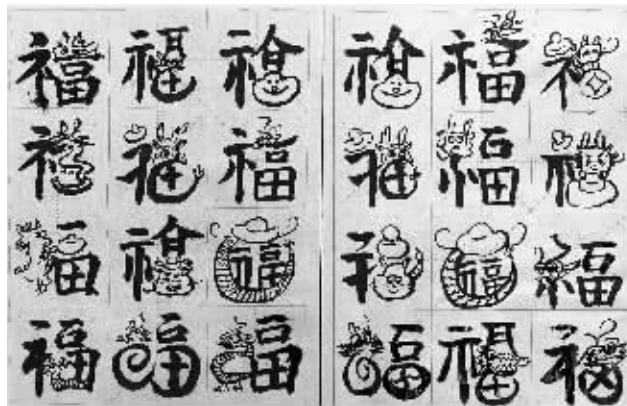 福 福 福 福 福 福
福 福 福 福 福 福
福 福 福 福 福 福
福 福 福 福 福 福